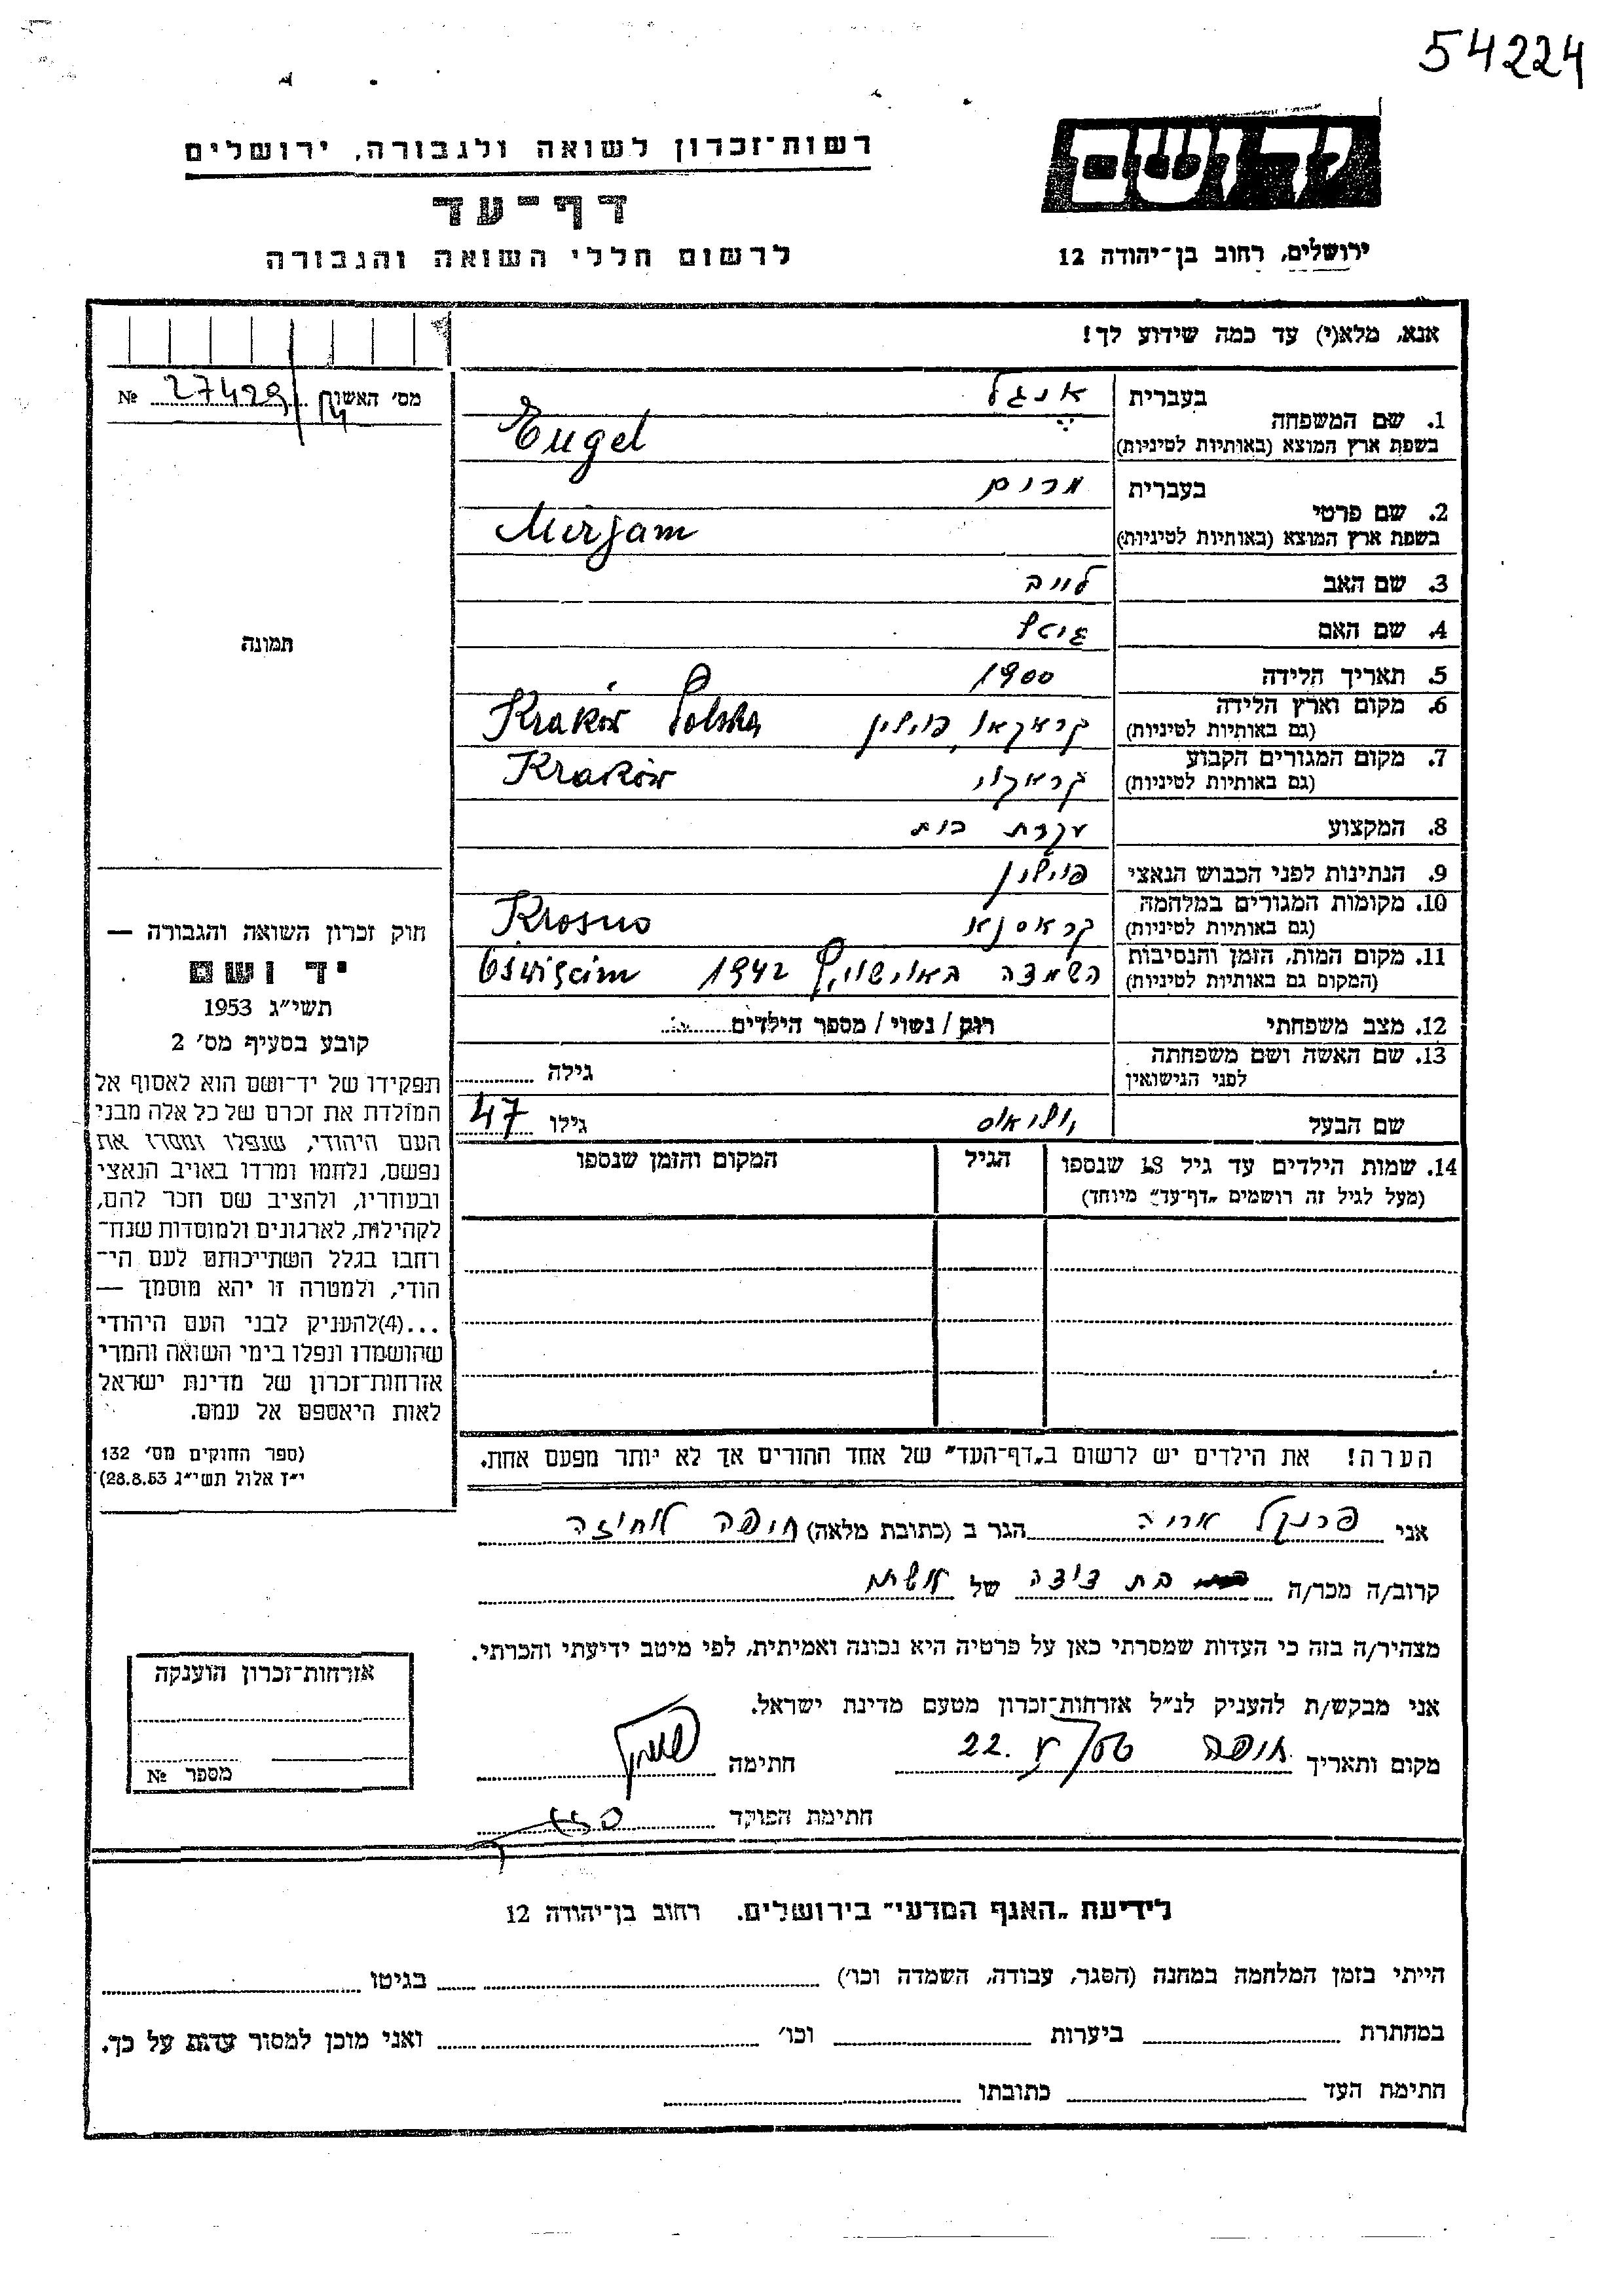 54224
יד ושם
ירושלים, רחוב בן־יהודה 12
רשות־זכרון לשואה ולגבורה, ירושלים
דף־עד
לרשום חללי השואה והגבורה
אנא, מלא(י) עד כמה שידוע לך!
מס' האשוף 27429/14 №
1. שם המשפחה בעברית אנגל
בשפת ארץ המוצא (באותיות לטיניות) Engel
2. שם פרטי בעברית מרים
בשפת ארץ המוצא (באותיות לטיניות) Mirjam
3. שם האב לייב
4. שם האם
5. תאריך הלידה 1900
6. מקום וארץ הלידה (גם באותיות לטיניות) קראקאו, פוילין Kraków Polska
7. מקום המגורים הקבוע (גם באותיות לטיניות) קראקוו Kraków
8. המקצוע עקרת בית
9. הנתינות לפני הכבוש הנאצי פוילין
10. מקומות המגורים במלחמה (גם באותיות לטיניות) קראסנא Krosno
11. מקום המות, הזמן והנסיבות (המקום גם באותיות לטיניות) השמדה באושוויץ 1942 Oswięcim
12. מצב משפחתי רוק / נשוי / מספר הילדים
13. שם האשה ושם משפחתה לפני הנישואין גילה
שם הבעל גילו 47
14. שמות הילדים עד גיל 18 שנספו (מעל לגיל זה רושמים „דף־עד" מיוחד) הגיל המקום והזמן שנספו
הערה! את הילדים יש לרשום ב„דף־העד" של אחד ההורים אך לא יותר מפעם אחת.
תמונה
חוק זכרון השואה והגבורה —
יד ושם
תשי"ג 1953
קובע בסעיף מס' 2
תפקידו של יד־ושם הוא לאסוף אל
המולדת את זכרם של כל אלה מבני
העם היהודי, שנפלו ומסרו את
נפשם, נלחמו ומרדו באויב הנאצי
ובעוזריו, ולהציב שם וזכר להם,
לקהילות, לארגונים ולמוסדות שנח־
רבו בגלל השתייכותם לעם הי־
הודי, ולמטרה זו יהא מוסמך —
...(4) להעניק לבני העם היהודי
שהושמדו ונפלו בימי השואה והמרי
אזרחות־זכרון של מדינת ישראל
לאות היאספם אל עמם.
(ספר החוקים מס' 132
י"ז אלול תשי"ג 28.8.53)
אני פרנקל אריה הגר ב (כתובת מלאה) חיפה
קרוב/ה מכר/ה בת דודה של
מצהיר/ה בזה כי העדות שמסרתי כאן על פרטיה היא נכונה ואמיתית, לפי מיטב ידיעתי והכרתי.
אני מבקש/ת להעניק לנ"ל אזרחות־זכרון מטעם מדינת ישראל.
מקום ותאריך חיפה 22. חתימה
חתימת הפוקד
אזרחות־זכרון הוענקה
מספר №
לידיעת „האגף המדעי" בירושלים. רחוב בן־יהודה 12
הייתי בזמן המלחמה במחנה (הסגר, עבודה, השמדה וכו') בגיטו
במחתרת ביערות וכו' ואני מוכן למסור עדות על כך.
חתימת העד כתובתו